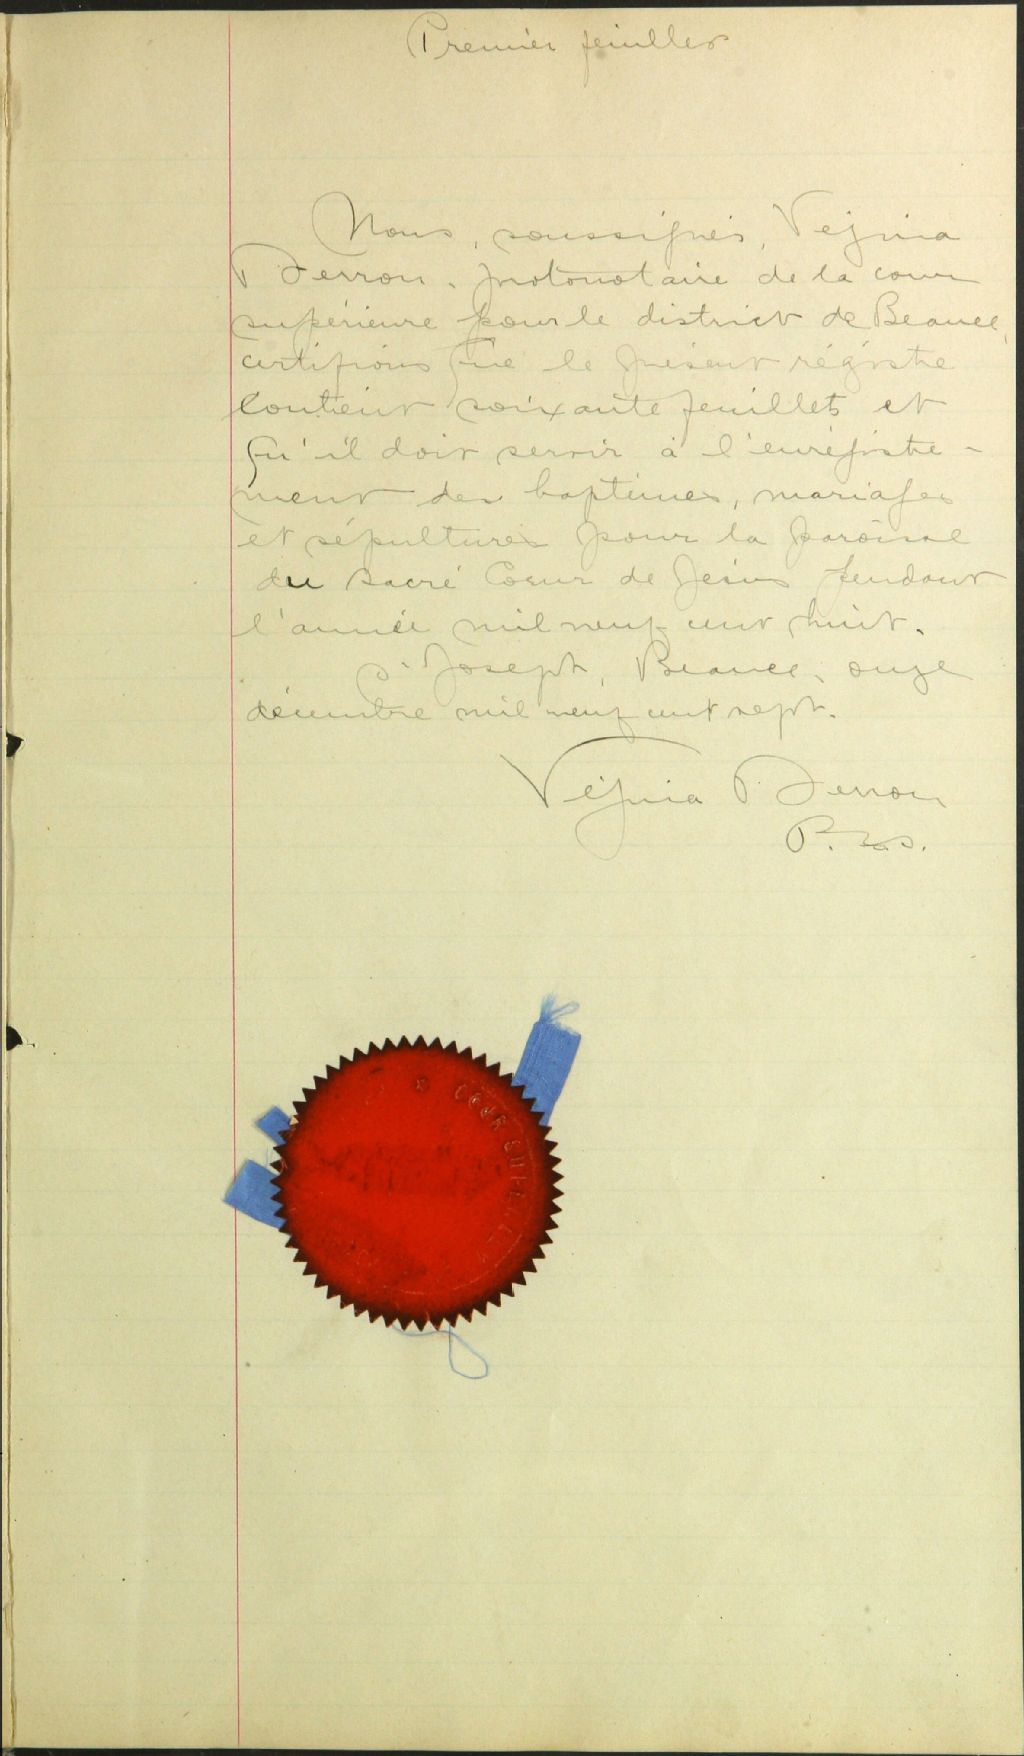 Premier feuillet
Nous, soussignés, Vézina
& Ferron, protonotaire de la cour
supérieure pour le district de Beauce,
certifions que le présent régistre
contient soixante feuillets et
qu'il doit servir à l'enrégistre-
ment des baptêmes, mariages
et sépultures pour la paroisse
du Sacré Coeur de Jésus pendant
l'année mil neuf cent huit.
St Joseph, Beauce, onze
décembre mil neuf cent sept.
Vézina
P. C. S.
COUR SUPERIEURE